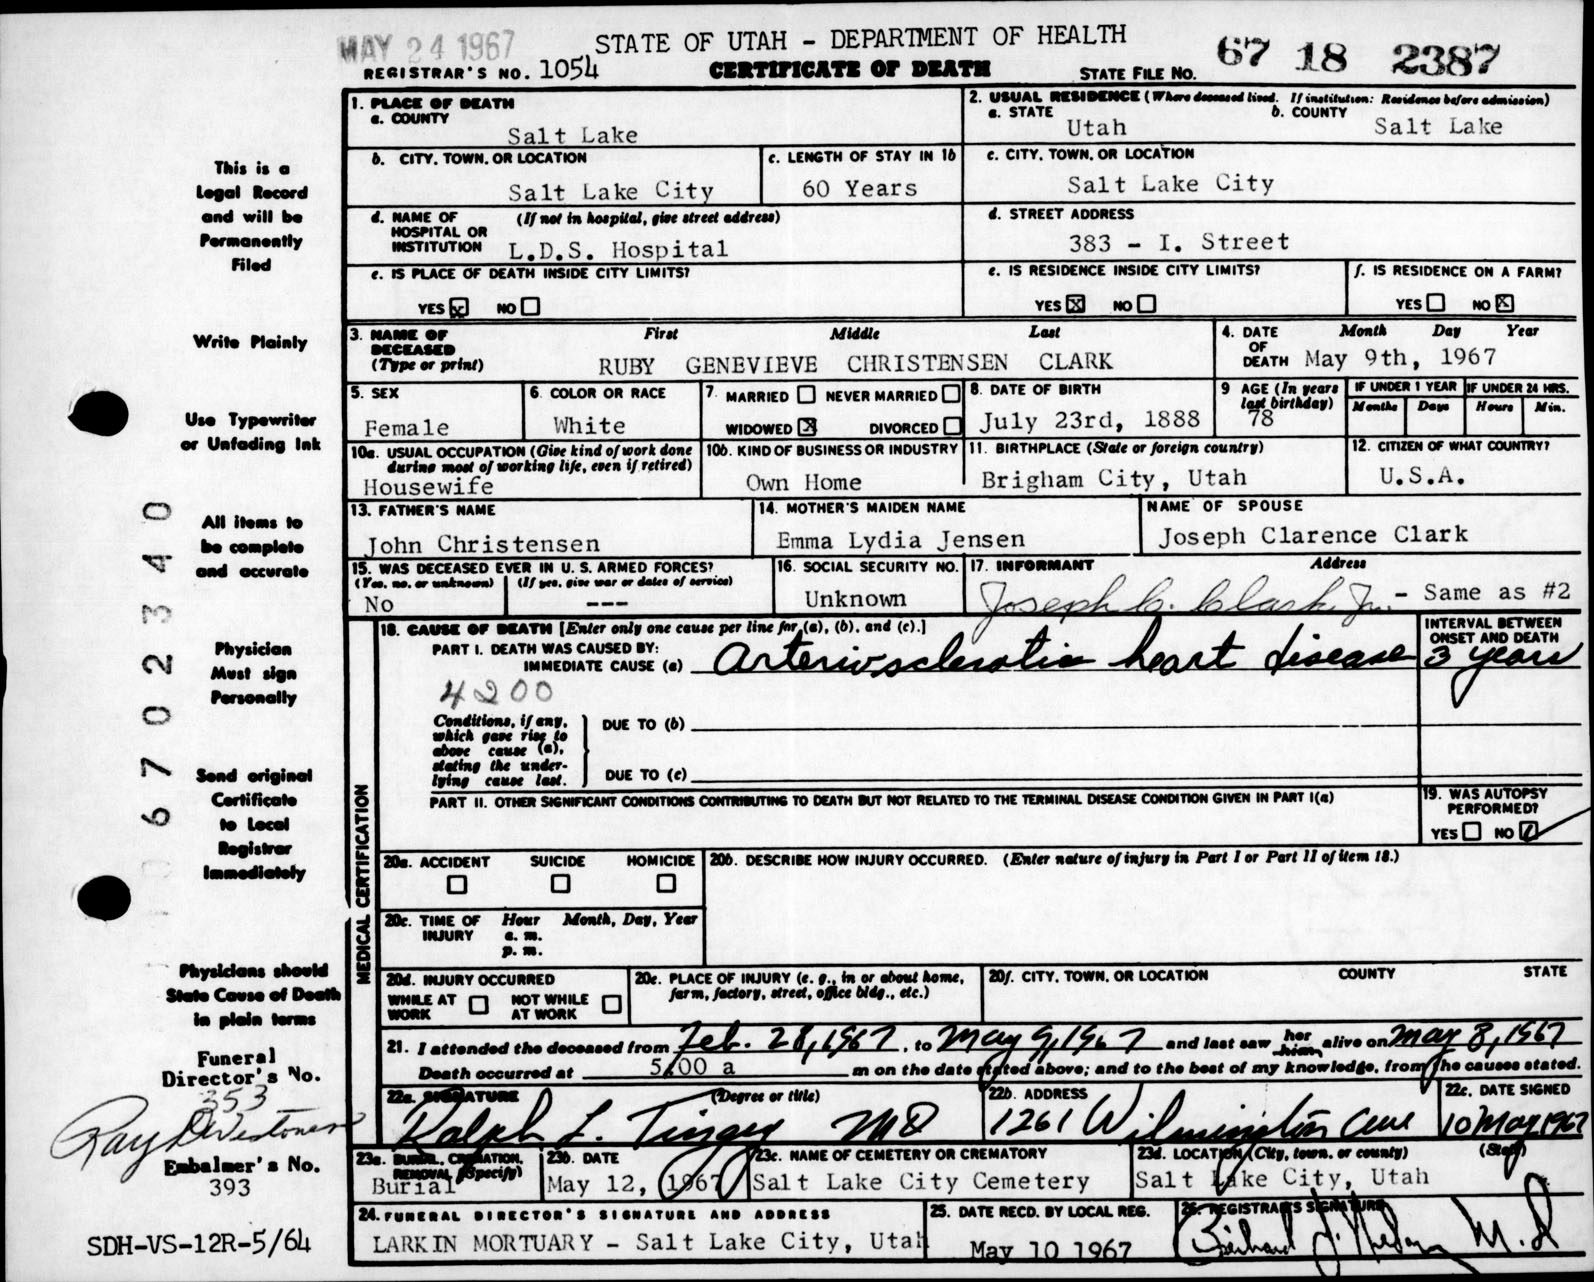 MAY 24 1967
STATE OF UTAH - DEPARTMENT OF HEALTH
67 18 2387
REGISTRAR'S NO. 1054
CERTIFICATE OF DEATH
STATE FILE NO.
This is a
Legal Record
and will be
Permanently
Filed
Write Plainly
Use Typewriter
or Unfading Ink
All items to
be complete
and accurate
Physician
Must sign
Personally
Send original
Certificate
to Local
Registrar
Immediately
Physicians should
State Cause of Death
in plain terms
Funeral
Director's No.
353
Embalmer's No.
393
SDH-VS-12R-5/64
06702340
1. PLACE OF DEATH
a. COUNTY
Salt Lake
2. USUAL RESIDENCE (Where deceased lived. If institution: Residence before admission)
a. STATE
Utah
b. COUNTY
Salt Lake
b. CITY, TOWN, OR LOCATION
Salt Lake City
c. LENGTH OF STAY IN 1b
60 Years
c. CITY, TOWN, OR LOCATION
Salt Lake City
d. NAME OF (If not in hospital, give street address)
HOSPITAL OR
INSTITUTION L.D.S. Hospital
d. STREET ADDRESS
383 - I. Street
e. IS PLACE OF DEATH INSIDE CITY LIMITS?
YES x NO
e. IS RESIDENCE INSIDE CITY LIMITS?
YES x NO
f. IS RESIDENCE ON A FARM?
YES NO x
3. NAME OF First Middle Last
DECEASED
(Type or print) RUBY GENEVIEVE CHRISTENSEN CLARK
4. DATE Month Day Year
OF
DEATH May 9th, 1967
5. SEX
Female
6. COLOR OR RACE
White
7. MARRIED NEVER MARRIED
WIDOWED x DIVORCED
8. DATE OF BIRTH
July 23rd, 1888
9 AGE (In years
last birthday)
78
IF UNDER 1 YEAR IF UNDER 24 HRS.
Months Days Hours Min.
10a. USUAL OCCUPATION (Give kind of work done
during most of working life, even if retired)
Housewife
10b. KIND OF BUSINESS OR INDUSTRY
Own Home
11. BIRTHPLACE (State or foreign country)
Brigham City, Utah
12. CITIZEN OF WHAT COUNTRY?
U.S.A.
13. FATHER'S NAME
John Christensen
14. MOTHER'S MAIDEN NAME
Emma Lydia Jensen
NAME OF SPOUSE
Joseph Clarence Clark
15. WAS DECEASED EVER IN U. S. ARMED FORCES?
(Yes, no, or unknown) (If yes, give war or dates of service)
No ---
16. SOCIAL SECURITY NO.
Unknown
17. INFORMANT Address
Joseph C. Clark, Jr. - Same as #2
MEDICAL CERTIFICATION
18. CAUSE OF DEATH [Enter only one cause per line for (a), (b), and (c).]
INTERVAL BETWEEN
ONSET AND DEATH
PART I. DEATH WAS CAUSED BY:
IMMEDIATE CAUSE (a) Arteriosclerotic heart disease 3 years
4200
Conditions, if any,
which gave rise to
above cause (a),
stating the under-
lying cause last.
DUE TO (b)
DUE TO (c)
PART II. OTHER SIGNIFICANT CONDITIONS CONTRIBUTING TO DEATH BUT NOT RELATED TO THE TERMINAL DISEASE CONDITION GIVEN IN PART I(a)
19. WAS AUTOPSY
PERFORMED?
YES NO
20a. ACCIDENT SUICIDE HOMICIDE
20b. DESCRIBE HOW INJURY OCCURRED. (Enter nature of injury in Part I or Part II of item 18.)
20c. TIME OF Hour Month, Day, Year
INJURY a. m.
p. m.
20d. INJURY OCCURRED
WHILE AT NOT WHILE
WORK AT WORK
20e. PLACE OF INJURY (e. g., in or about home,
farm, factory, street, office bldg., etc.)
20f. CITY, TOWN, OR LOCATION COUNTY STATE
21. I attended the deceased from Feb. 28, 1967, to May 9, 1967 and last saw her him alive on May 8, 1967
Death occurred at 5:00 a m on the date stated above; and to the best of my knowledge, from the causes stated.
22a. SIGNATURE (Degree or title)
Ralph L. Tingey MD
22b. ADDRESS
1261 Wilmington Ave
22c. DATE SIGNED
10 May 1967
23a. BURIAL, CREMATION,
REMOVAL (Specify)
Burial
23b. DATE
May 12, 1967
23c. NAME OF CEMETERY OR CREMATORY
Salt Lake City Cemetery
23d. LOCATION (City, town, or county) (State)
Salt Lake City, Utah
24. FUNERAL DIRECTOR'S SIGNATURE AND ADDRESS
LARKIN MORTUARY - Salt Lake City, Utah
25. DATE RECD. BY LOCAL REG.
May 10 1967
26. REGISTRAR'S SIGNATURE
M.D